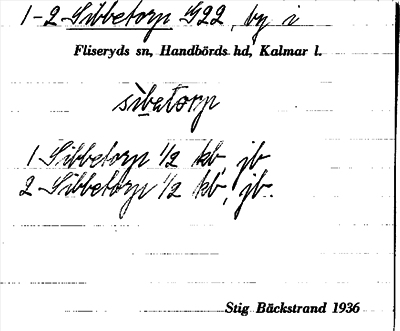 1-2 Sibbetorp 922, by i
Fliseryds sn, Handbörds hd, Kalmar l.
sìbatorp
1 Sibbetorp 1/2 kb, jb
2 Sibbetorp 1/2 kb, jb.
Stig Bäckstrand 1936